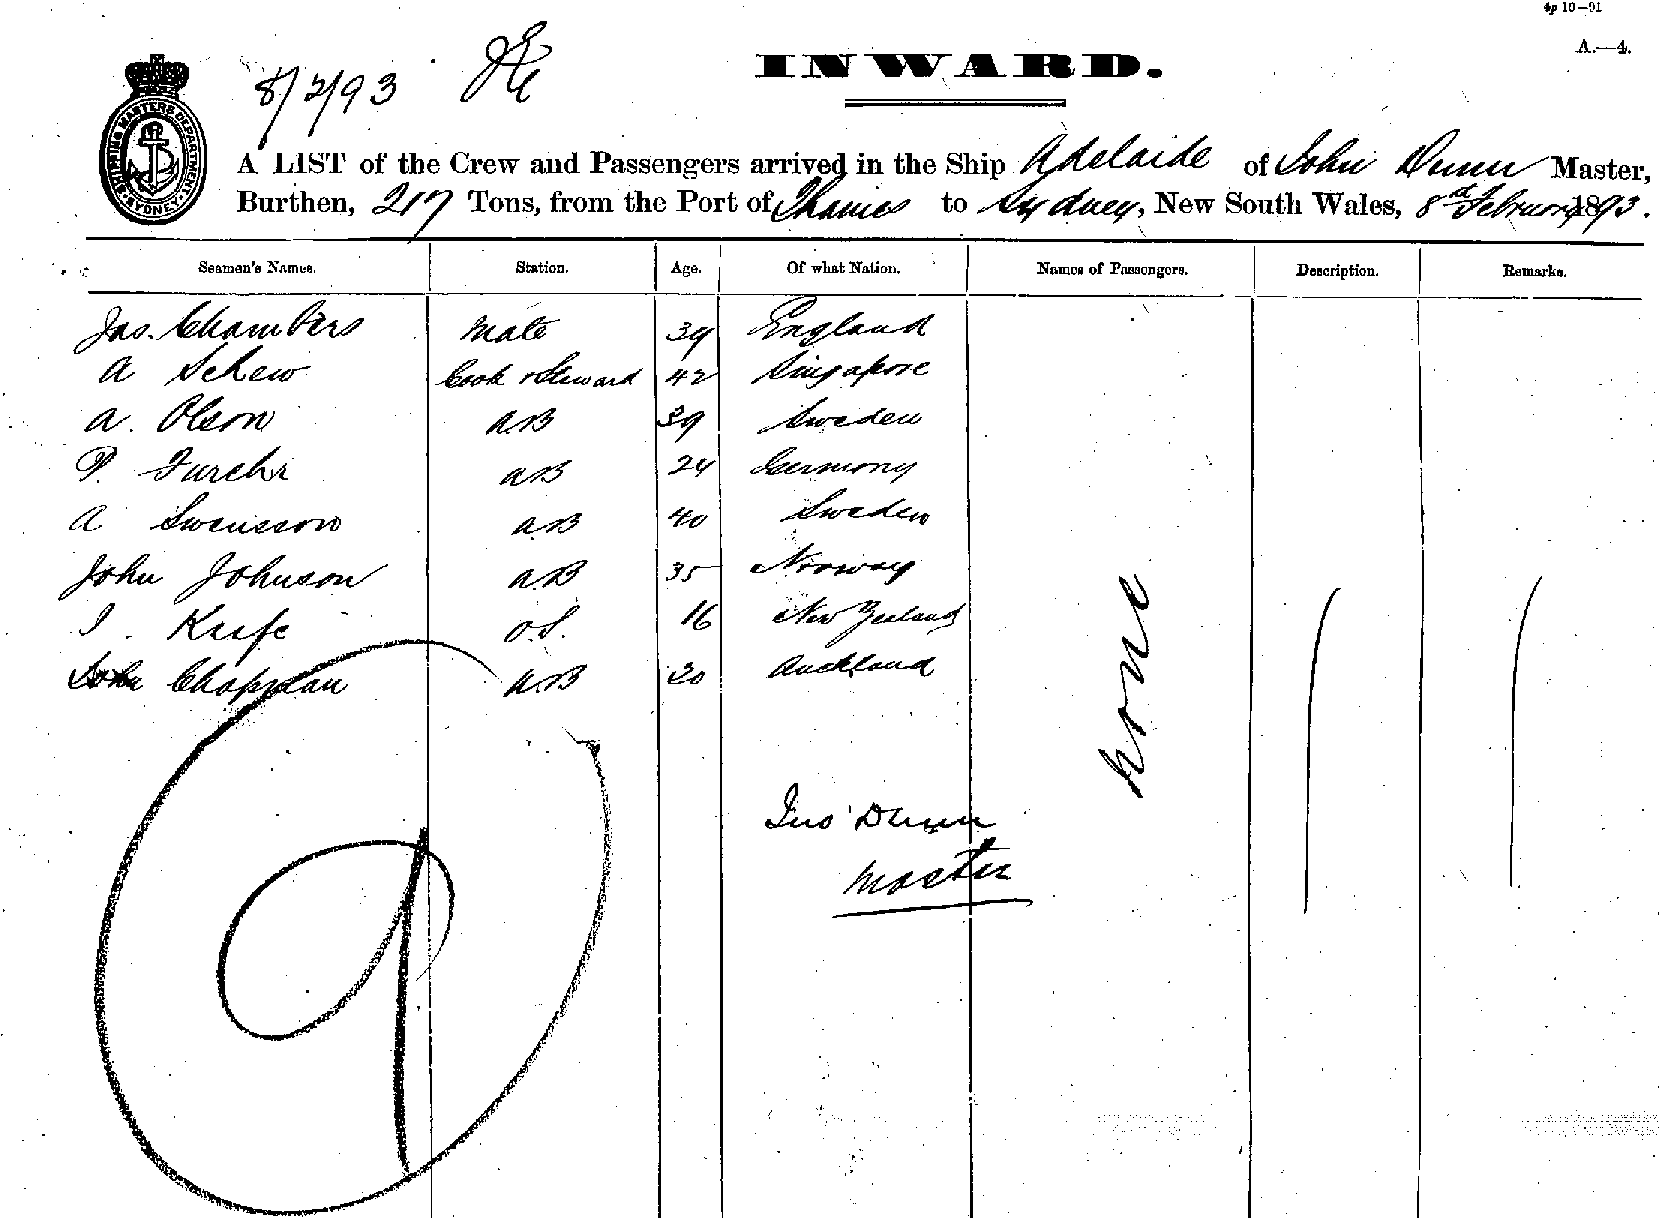 4p 10—91
A.—4.
8/2/93
INWARD.
SHIPPING MASTERS DEPARTMENT SYDNEY
A LIST of the Crew and Passengers arrived in the Ship Adelaide of John Dunn Master,
Burthen, 217 Tons, from the Port of Thames to Sydney, New South Wales, 8th February 1893.
Seamen's Names. Station. Age. Of what Nation. Names of Passengers. Description. Remarks.
Jas. Chambers Mate 39 England
A Schew Cook & Steward 42 Singapore
A. Olson AB 39 Sweden
P. AB 24 Germony
A Swensson AB 40 Sweden
John Johnson AB 35 Norway
J. Keefe O.S. 16 New Zealand
John Chapman AB 30 Auckland
none
Jno Dunn
Master
9